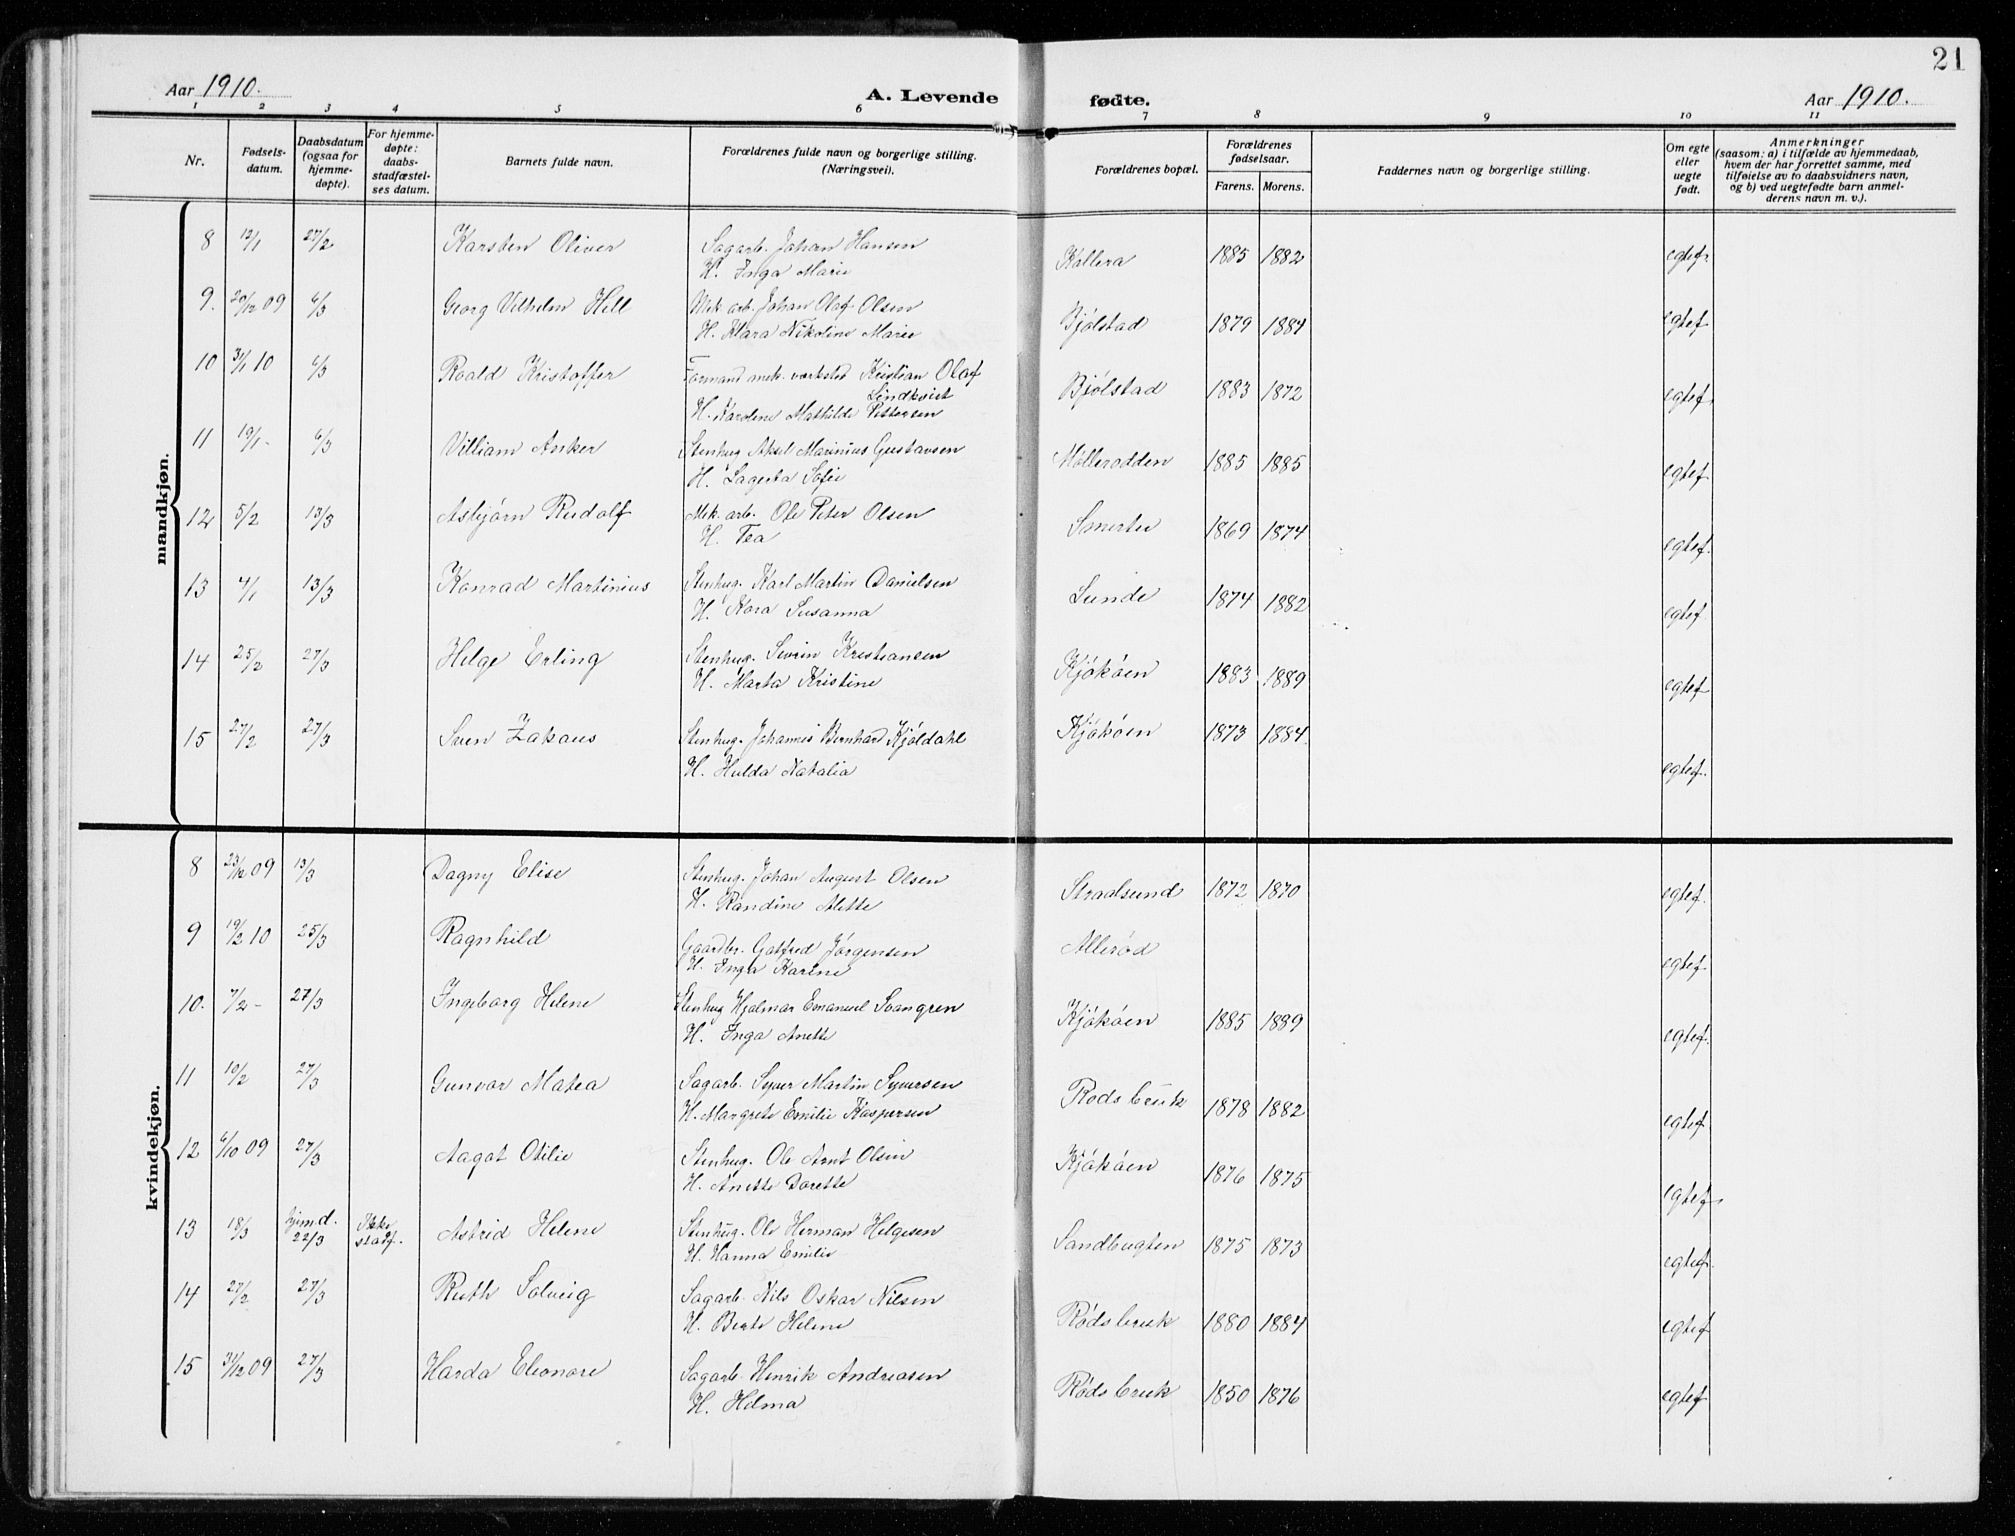 21
Aar 1910.
A. Levende
fødte.
Aar 1910.
1 2 3 4 5 6 7 8 9 10 11
Nr.
Fødsels-
datum.
Daabsdatum
(ogsaa for
hjemme-
døpte).
For hjemme-
døpte:
daabs-
stadfæstel-
ses datum.
Barnets fulde navn.
Forældrenes fulde navn og borgerlige stilling.
(Næringsvei).
Forældrenes bopæl.
Forældrenes
fødselsaar.
Farens. Morens.
Faddernes navn og borgerlige stilling.
Om egte
eller
uegte
født.
Anmerkninger
(saasom: a) i tilfælde av hjemmedaab,
hvem der har forrettet samme, med
tilføielse av to daabsvidners navn,
og b) ved uegtefødte barn anmel-
derens navn m. v.).
mandkjøn.
8 12/1 27/2 Karsten Oliver Sagarb. Johan Hansen Kallera 1885 1882 egtef.
H. Inga Marie
9. 20/12 09 6/3 Georg Vilhelm Hill Mek. arb. Johan Olaf Olsen Bjølstad 1879 1884 egtef
H. Klara Nikoline Marie
10 31/1 10 6/3 Roald Kristoffer Formand mek. værksted Kristian Olaf Bjølstad 1883 1872 egtef.
Lindkvist
H. Karoline Mathilde Pettersen
11 19/1 - 6/3 Villiam Anker Stenhug Aksel Marinius Gustavsen Mølleradden 1885 1885 egtef
H. Lagerta Sofie
12 5/2 13/3 Asbjørn Rudolf Mek. arb. Ole Peter Olsen Smertu 1869 1874 egtef.
H. Tea
13 4/1 13/3 Konrad Martinius Stenhug. Karl Martin Danielsen Lunde 1874 1882 egtef
H. Kora Susanna
14 25/2 27/3 Helge Erling Stenhug. Sevrin Kristiansen Kjøkøen 1883 1889 egtef
H. Marta Kristine
15 27/2 27/3 Sven Zakaus Stenhug. Johannes Bernhard Kjøldahl Kjøkøen 1873 1884. egtef.
H. Hulda Natalia
kvindekjøn.
8 23/12 09 13/3 Dagny Elise Stenhug. Johan August Olsen Straalsund 1872 1870 egtef.
H. Randine Alette
9 19/2 10 25/3 Ragnhild Gaardbr. Gotfred Jørgensen Allerød egtef.
H. Inga Karine
10. 7/2 - 27/3 Ingeborg Helene Stenhug Hjalmar Emanuel Svangren Kjøkøen 1885 1889 egtef.
H. Inga Anette
11 10/2 27/3 Gunvor Matea Sagarb. Syver Martin Syversen Røds bruk 1878 1882 egtef.
H. Margrete Emilie Kaspersen
12 6/10 09 27/3 Aagot Otilie Stenhug. Ole Arnt Olsen Kjøkøen 1876 1875 egtef.
H. Anette Dorette
13 18/3 hjem.d. 22/3 Ikke stadf. Astrid Helene Stenhug. Ole Herman Helgesen Sandbugten 1875 1873 egtef.
H. Hanna Emilie
14 27/2 27/3 Ruth Solveig Sagarb. Nils Oskar Nilsen Røds bruk 1880 1884 egtef
H. Berte Helene
15 31/12 09 27/3 Harda Eleonore Sagarb. Henrik Andreasen Røds bruk 1850 1876 egtef
H. Helma